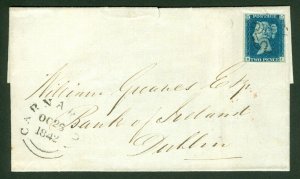 POSTAGE
TWO PENCE
William Greaves Esq.
Bank of Ireland
Dublin
OC 26
1842